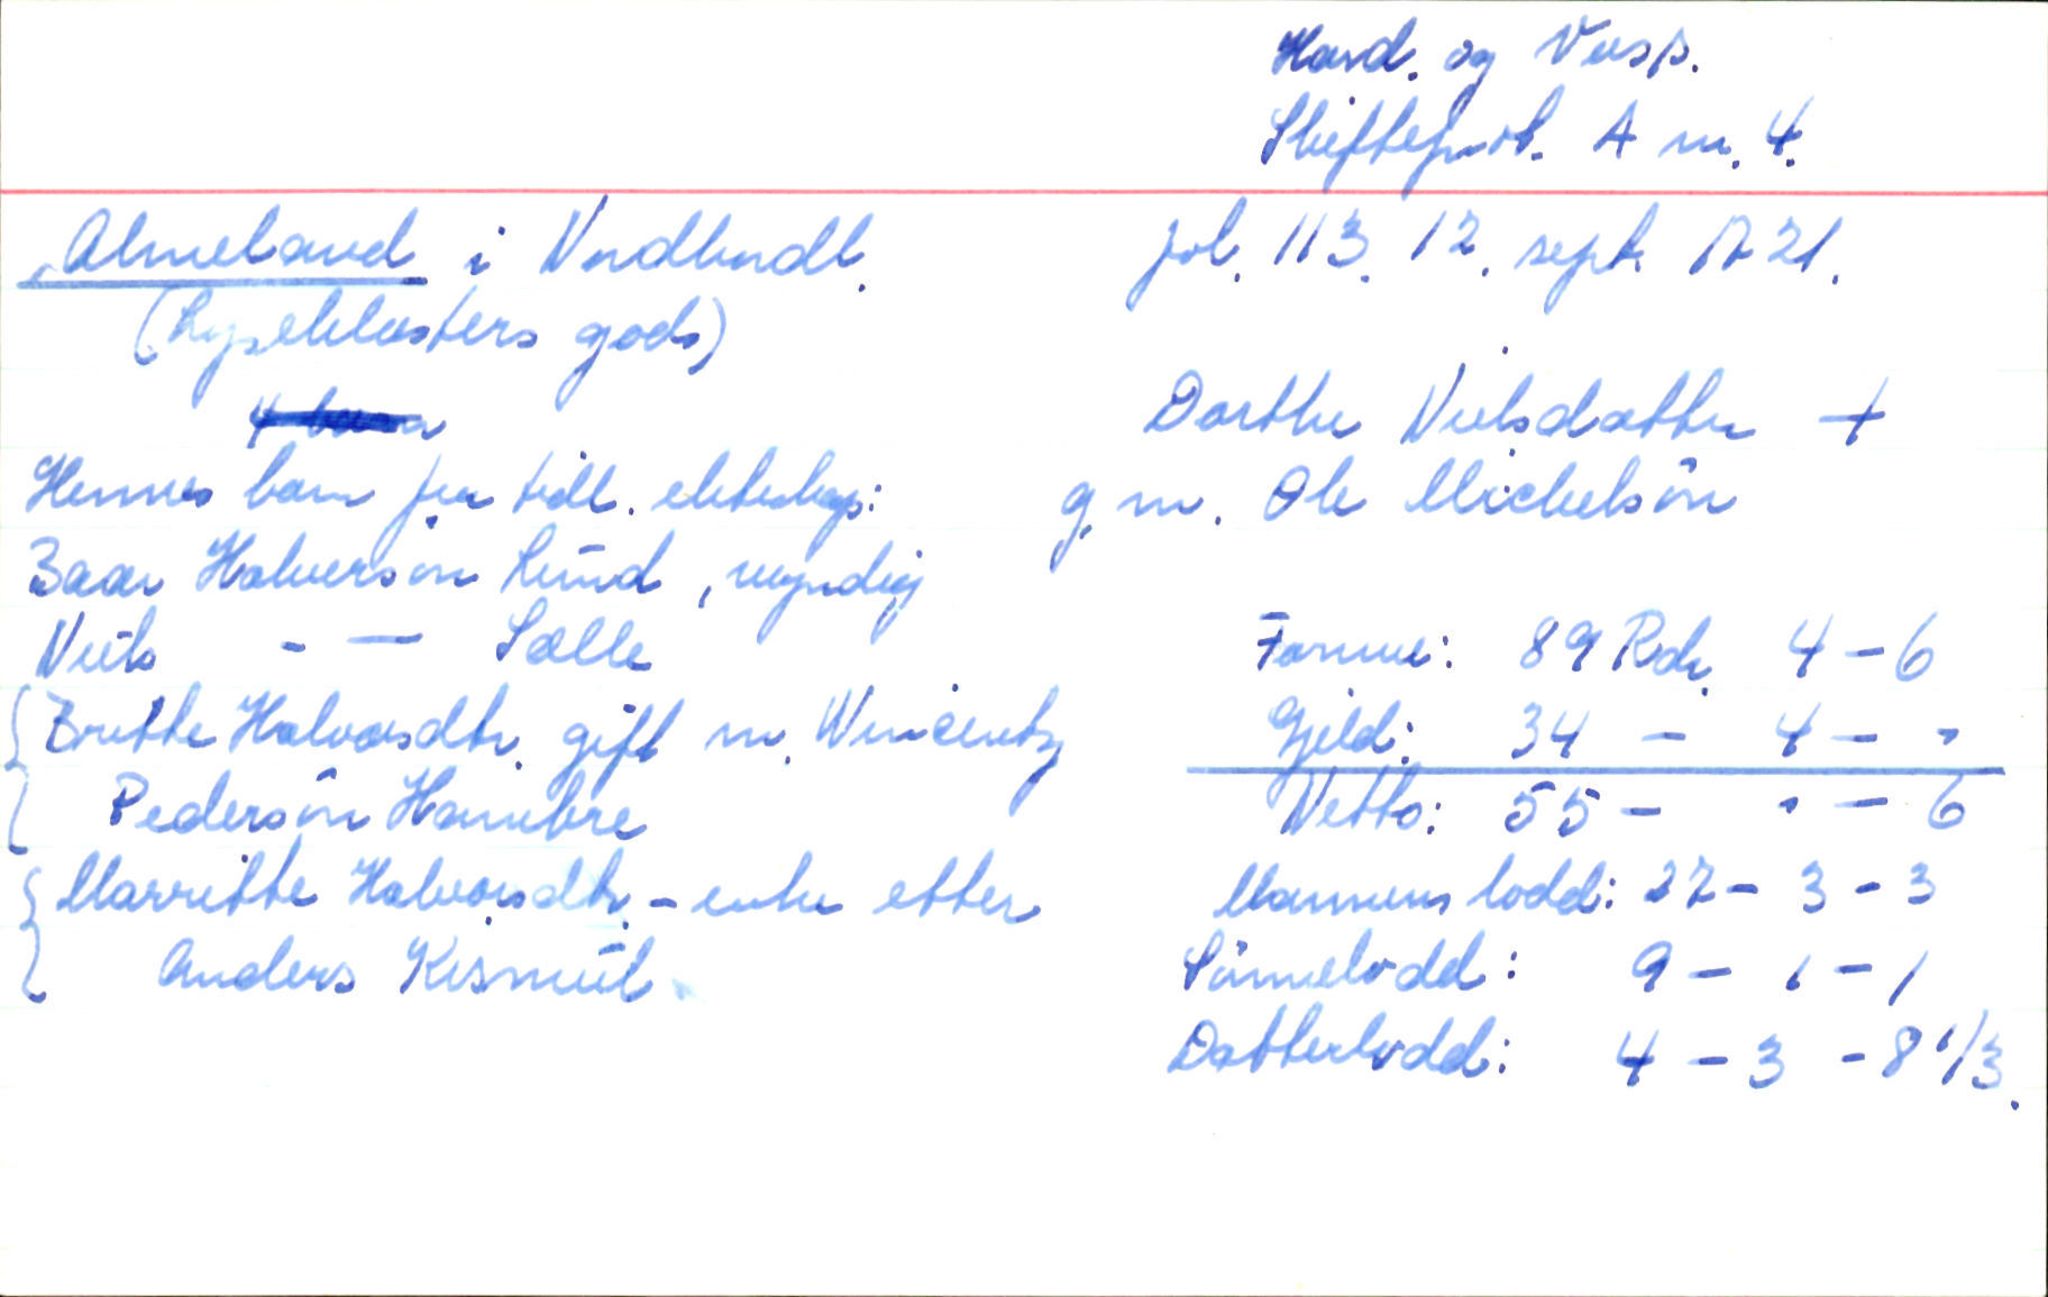 Hard. og Voss.
Skifteprot. A nr. 4.
Almeland i Nordhordl. fol. 113. 12. sept. 1721.
(Lyseklosters gods)
Dorthe Nielsdatter +
Hennes barn fra tidl. ekteskap: g. m. Ole Michelsön
Baar Halverson Lund, myndig
Niels - — Sælle
Formue: 89 Rdr. 4 - 6
Britthe Halvorsdtr. gift m. Wincentz
Gjeld: 34 - 4 - "
Pedersön Hambre
Netto: 55 - " - 6
Marritthe Halvorsdtr. - enke etter
Mannens lodd: 27 - 3 - 3
Anders Kismul.
Sönnelodd: 9 - 1 - 1
Datterlodd: 4 - 3 - 8 1/3.